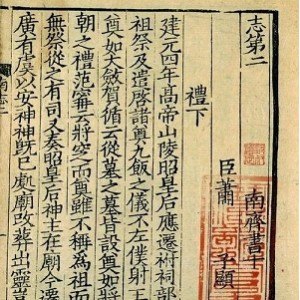 志第二 南齊書十
禮下
臣蕭 子顯
建元四年高帝山陵昭皇后應遷祔祠部
祖祭及遣啓諸奠九飯之儀不左僕射王
奠如大斂賀循云從墓之墓皆設奠如將
朝之禮范甯云將窆而奠雖不稱爲祖而
無祭從之有司又奏昭皇后神主在廟今遷
廣有虞以安神神旣已處廟改葬出靈豈